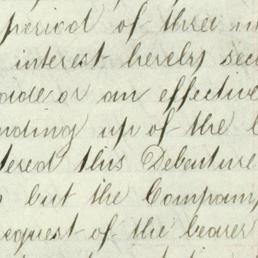 period of three m
interest hereby sec
side or an effective
nding up of the C
tered this Debenture
but the Company
request of the bearer